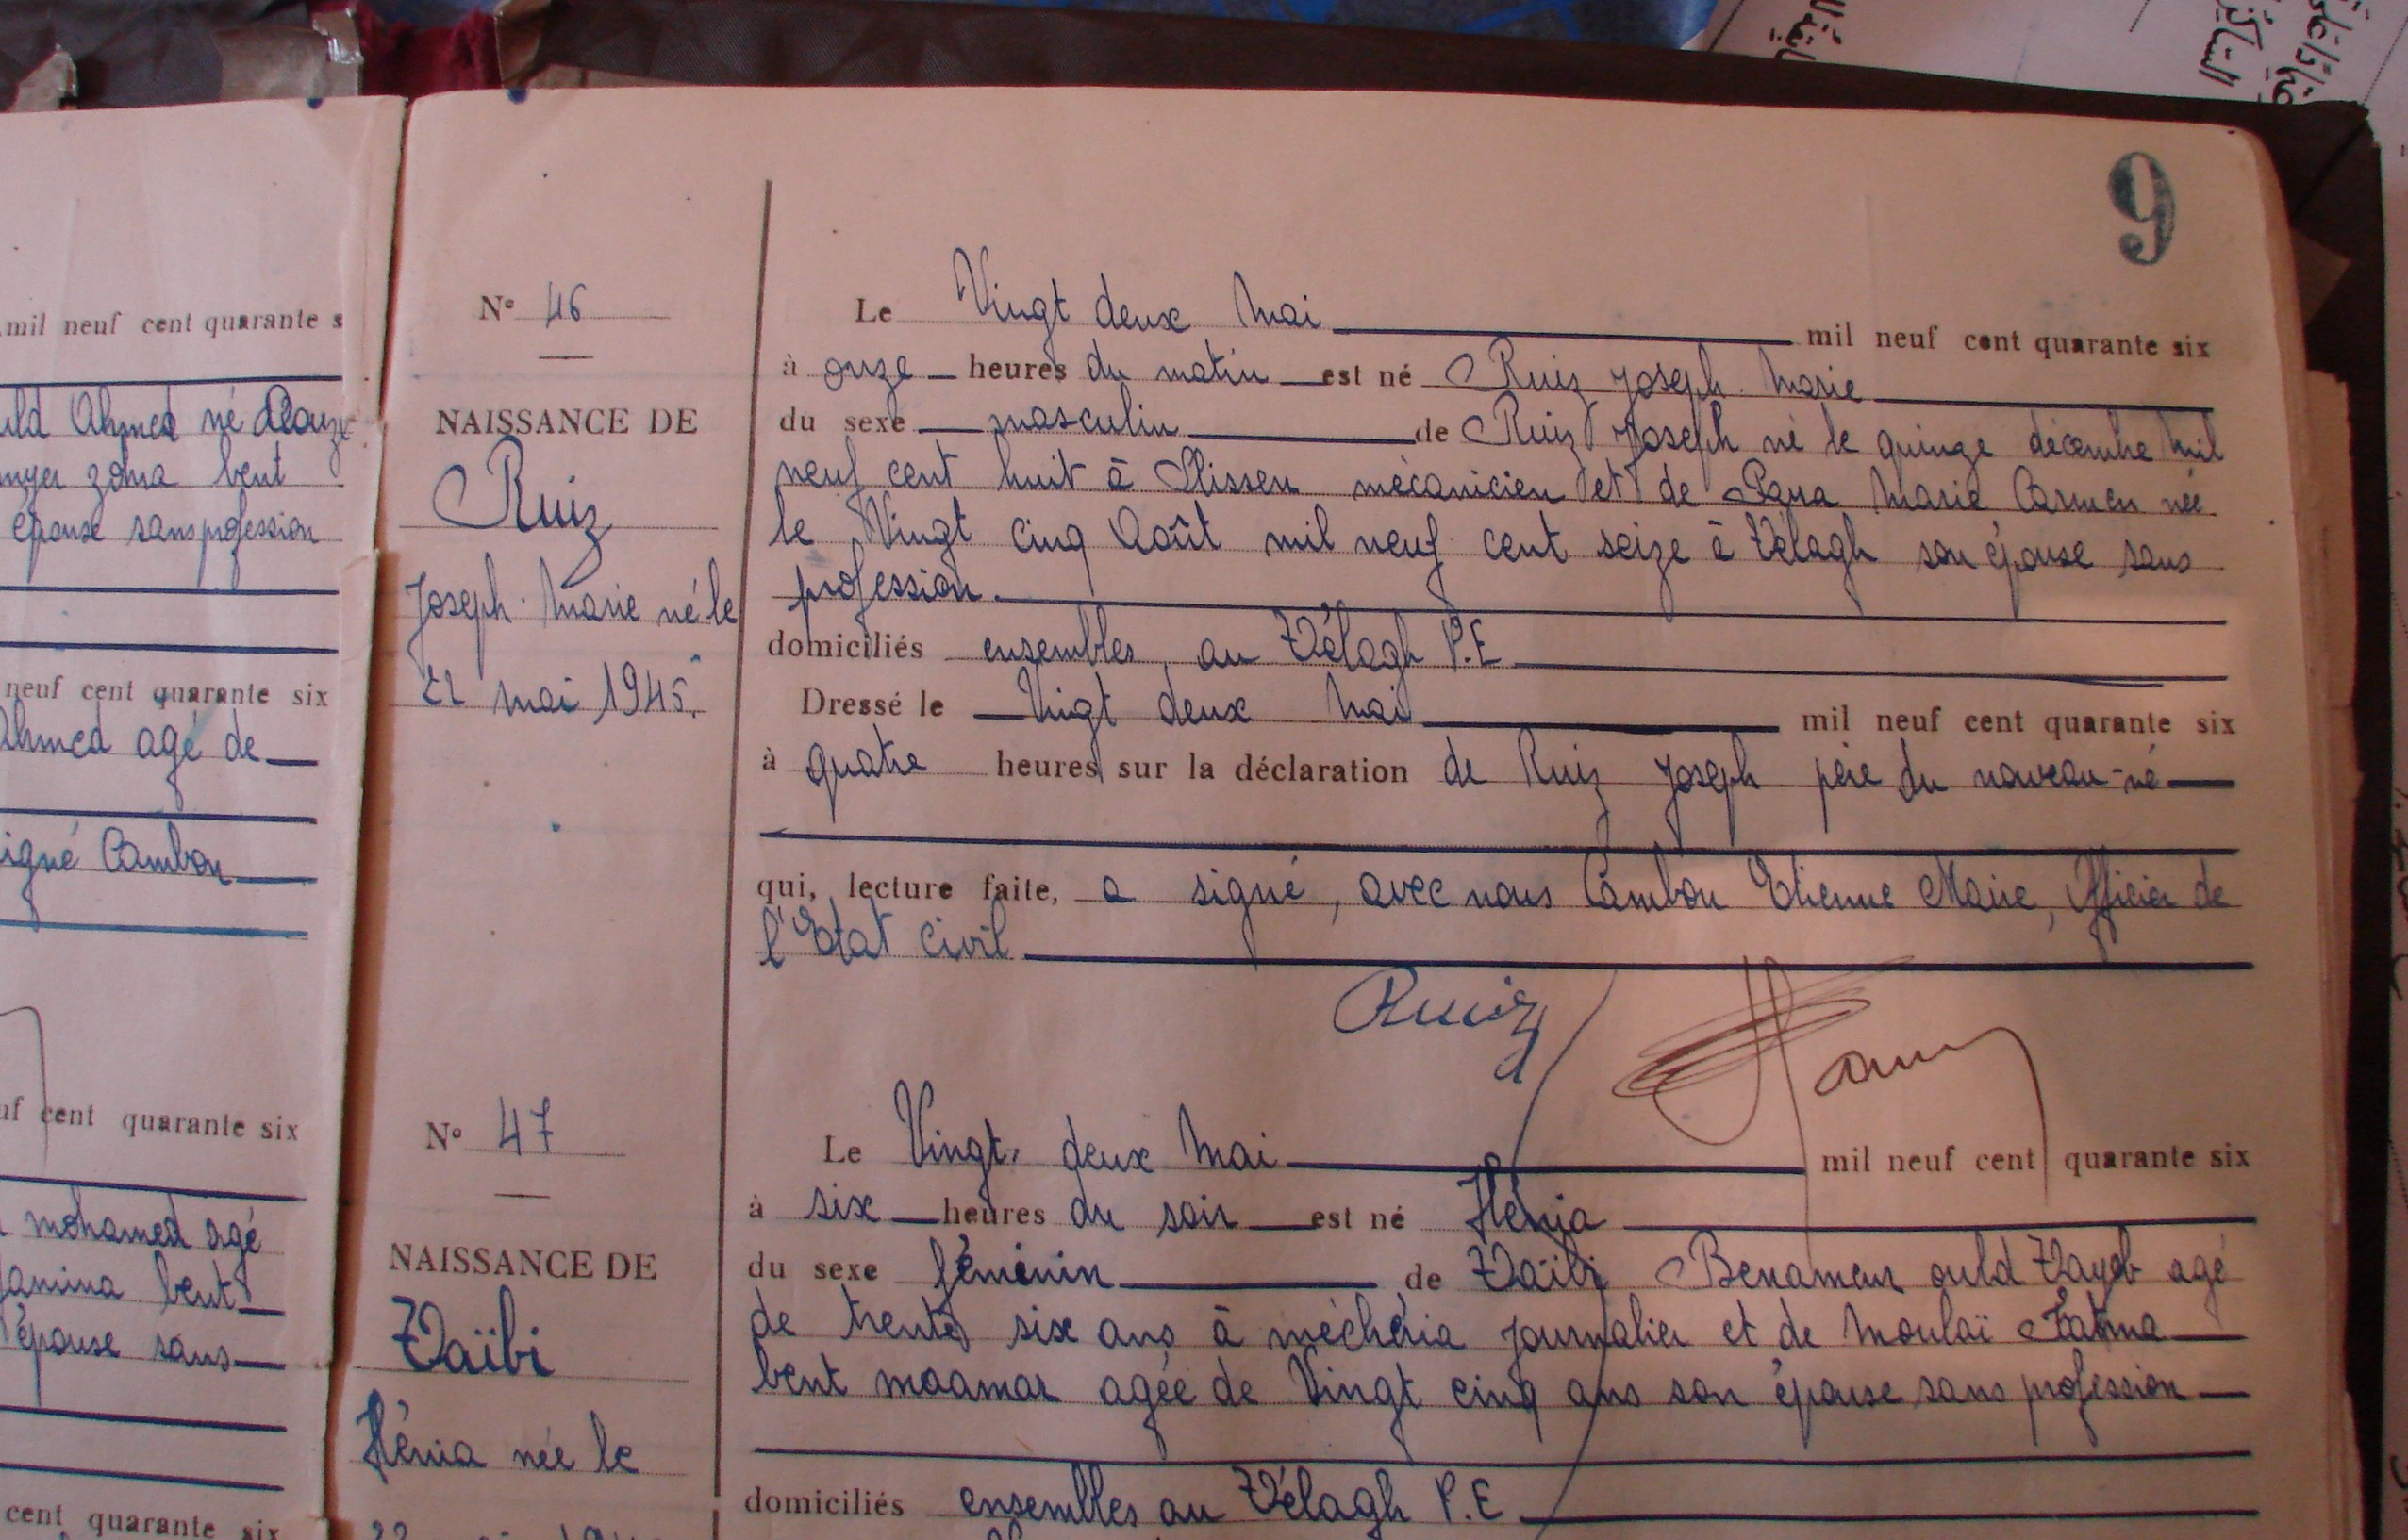 mil neuf cent quarante s
uld Ahmed né Daouze
zohra bent
épouse sans profession
neuf cent quarante six
Ahmed agé de
igné Cambon
uf cent quarante six
mohamed agé
bent
épouse sans
cent quarante six
9
N° 46
NAISSANCE DE
Ruiz
Joseph-Marie né le
22 mai 1945.
Le Vingt deux Mai mil neuf cent quarante six
à onze heures du matin est né Ruiz Joseph-Marie
du sexe masculin de Ruiz Joseph né le quinze décembre mil
neuf cent huit à Slissen mécanicien et de Marie Carmen née
le Vingt cinq Août mil neuf cent seize à Télagh son épouse sans
profession.
domiciliés ensembles, au Télagh P.E
Dressé le Vingt deux Mai mil neuf cent quarante six
à quatre heures sur la déclaration de Ruiz Joseph père du nouveau-né
qui, lecture faite, a signé, avec nous Cambon Etienne Maire, Officier de
l'Etat Civil
Ruiz
N° 47
NAISSANCE DE
Taïbi
Hénia née le
Le Vingt-deux Mai mil neuf cent quarante six
à six heures du soir est né Hénia
du sexe féminin de Taïbi Benameur ould Tayeb agé
de trente six ans à méchéria journalier et de Moulaï Fatma
bent maamar agée de Vingt cinq ans son épouse sans profession
domiciliés ensembles au Télagh P.E